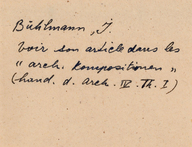 Bühlmann, J.
Voir son article dans les
"arch. Kompositionen"
(hand. d. arch. IV. Th. I)